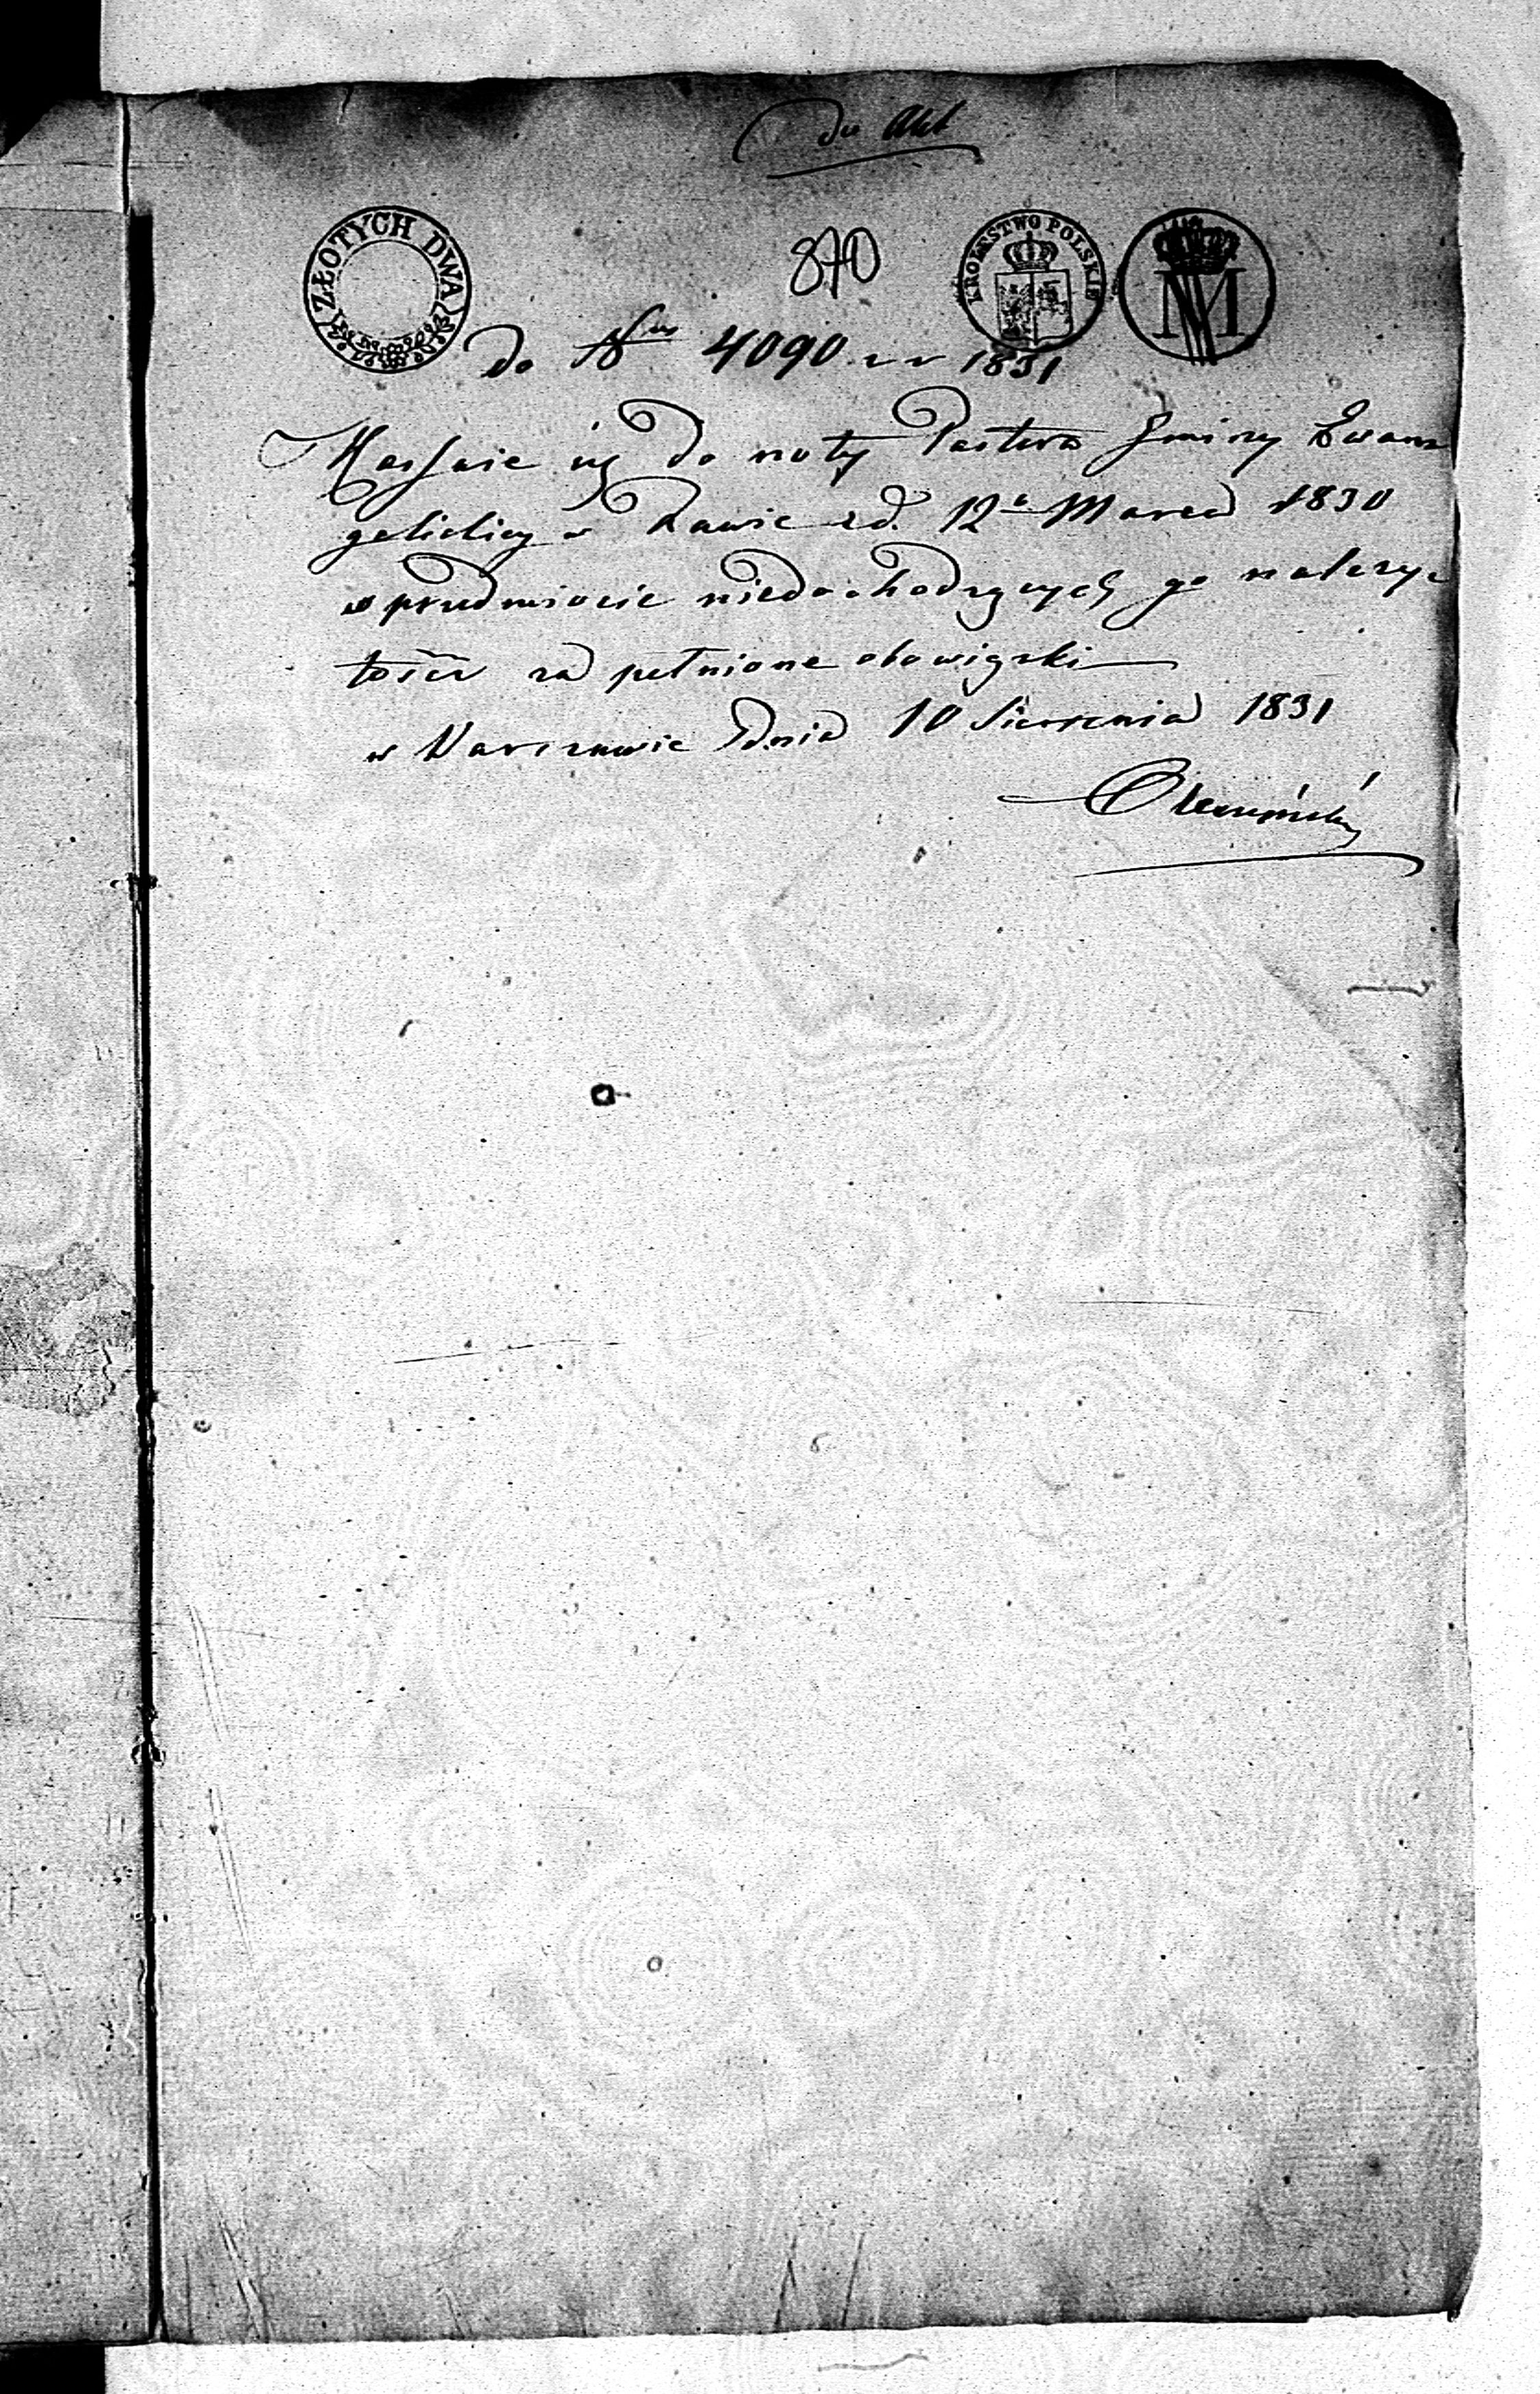 do Akt
ZŁOTYCH DWA
870
KRÓLESTWO POLSKIE
M
do Nru 4090 z r 1831
Kassuie się do noty Pastora Gminy Ewan=
gelickiey w Rawie z d. 12 Marca 1830
w przedmiocie niedochodzących go należy=
tości za pełnione obowiązki
w Warszawie dnia 10 Sierpnia 1831